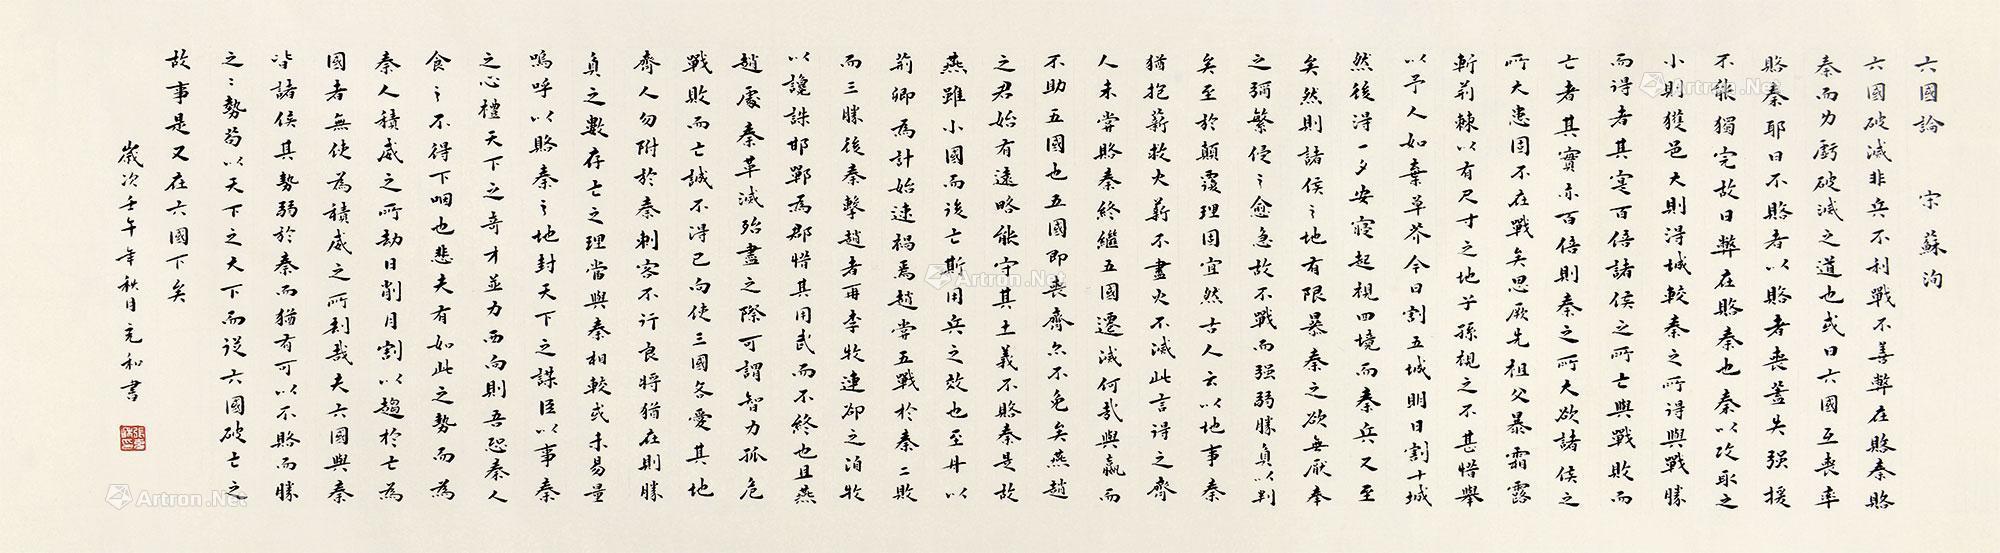 六國論 宋 蘇洵
六國破滅非兵不利戰不善弊在賂秦賂
秦而力虧破滅之道也或曰六國互喪率
賂秦耶曰不賂者以賂者喪蓋失强援
不能獨完故曰弊在賂秦也秦以攻取之
小則獲邑大則得城較秦之所得與戰勝
而得者其實百倍諸侯之所亡與戰敗而
亡者其實亦百倍則秦之所大欲諸侯之
所大患固不在戰矣思厥先祖父暴霜露
斬荊棘以有尺寸之地子孫視之不甚惜舉
以予人如棄草芥今日割五城明日割十城
然後得一夕安寢起視四境而秦兵又至
矣然則諸侯之地有限暴秦之欲無厭奉
之彌繁侵之愈急故不戰而强弱勝負以判
矣至於顛覆理固宜然古人云以地事秦
猶抱薪救火薪不盡火不滅此言得之齊
人未嘗賂秦終繼五國遷滅何哉與嬴而
不助五國也五國即喪齊亦不免矣燕趙
之君始有遠略能守其土義不賂秦是故
燕雖小國而後亡斯用兵之效也至丹以
荊卿為計始速禍焉趙嘗五戰於秦二敗
而三勝後秦擊趙者再李牧連卻之洎牧
以讒誅邯鄲為郡惜其用武而不終也且燕
趙處秦革滅殆盡之際可謂智力孤危
戰敗而亡誠不得已向使三國各愛其地
齊人勿附於秦刺客不行良將猶在則勝
負之數存亡之理當與秦相較或未易量
嗚呼以賂秦之地封天下之謀臣以事秦
之心禮天下之奇才並力西向則吾恐秦人
食之不得下咽也悲夫有如此之勢而為
秦人積威之所劫日削月割以趨於亡為
國者無使為積威之所刼哉夫六國與秦
皆諸侯其勢弱於秦而猶有可以不賂而勝
之之勢苟以天下之大下而從六國破亡之
故事是又在六國下矣
歲次壬午年秋月充和書
Artron.Net
Artron.Net
Artron.Net
Artron.Net
Artron.Net